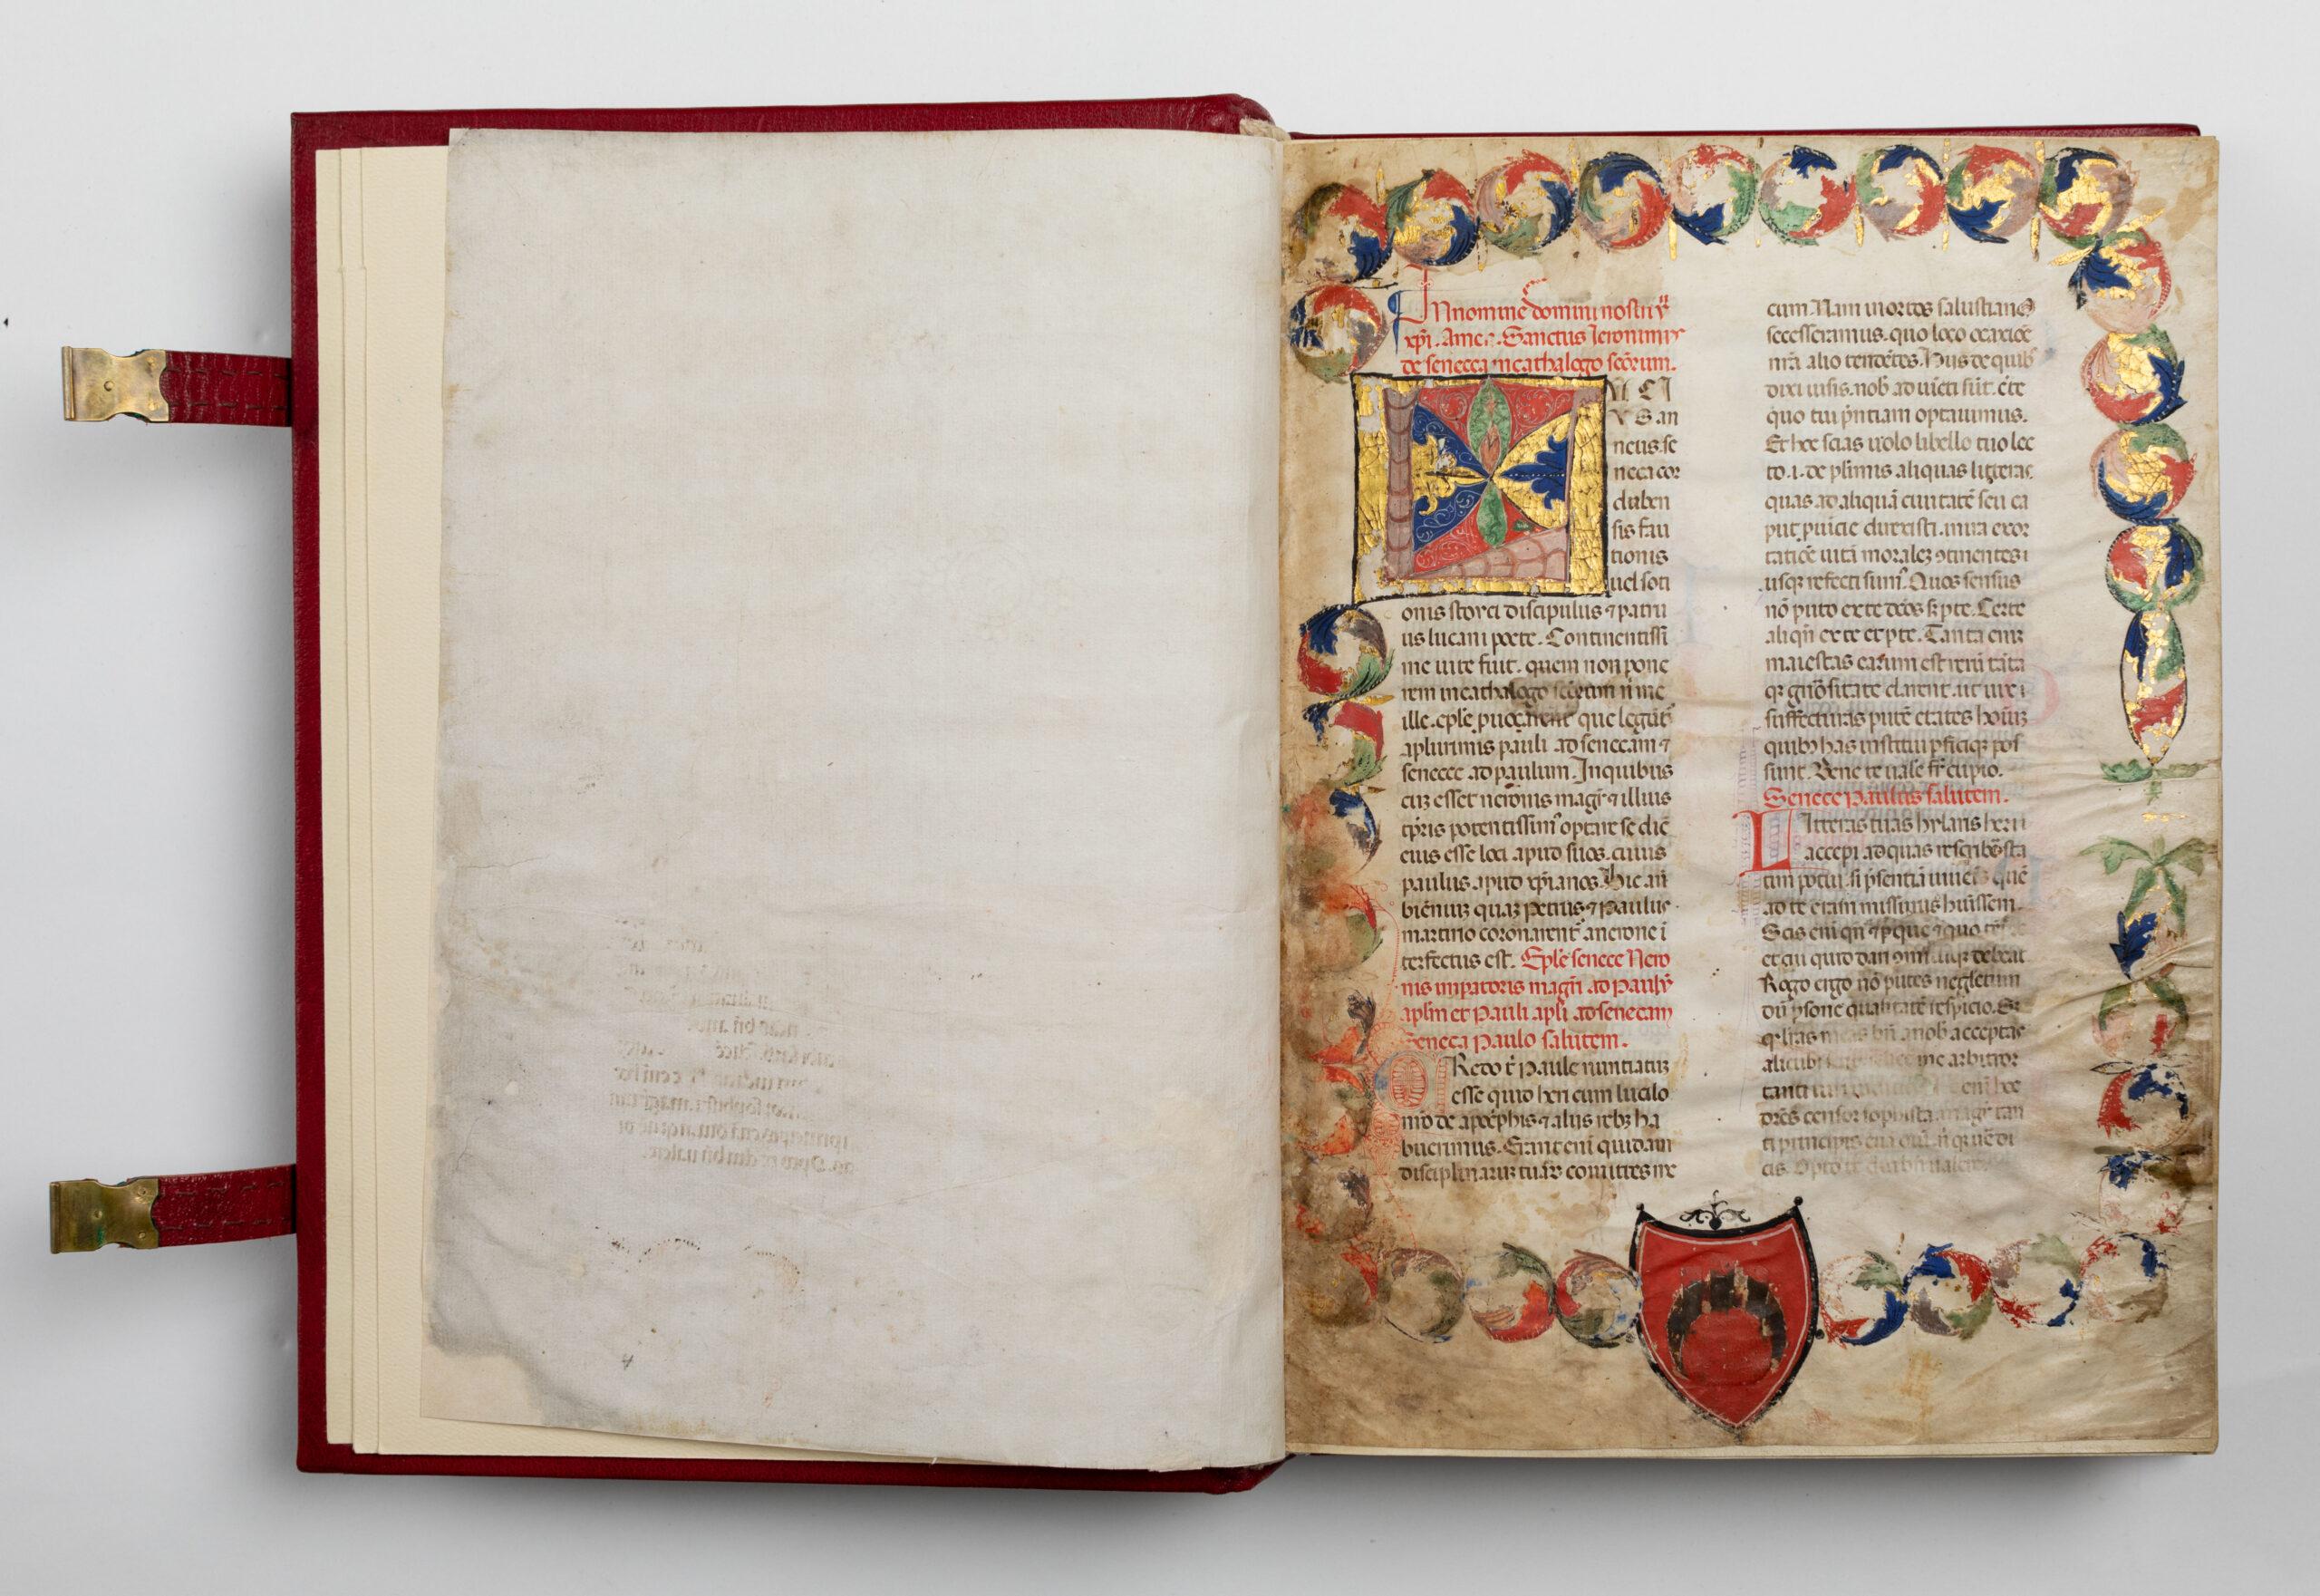 In nomine domini nostri
xpi. Amen. Sanctus Ieronimus
de seneca in cathalogo scõrum.
L U CI
VS an
neus se
neca cor
duben
sis fau
tionis
uel soti
onis stoyci discipulus ⁊ patru
us lucani poete. Continentissi
me uite fuit. quem non pone
rem in cathalogo scõrum ni me
ille. eple puocarent que legunt̃
a plurimis pauli ad senecam ⁊
senece ad paulum. In quibus
cuz esset neronis magr̃ ⁊ illius
tp̃ris potentissim⁹ optare se dic̃
eius esse loci apud suos. cuius
paulus apud xp̃ianos. Hic añ
bieñiuz quaz Petrus ⁊ Paulus
martirio coronarent̃ a nerone ĩ
terfectus est. Ep̃le senece Nero
nis imp̃atoris magr̃i ad Paulũ
ap̃lm et Pauli ap̃li ad senecam
Seneca Paulo salutem.
CRedo t̃ Paule nuntiatuz
esse quid heri cum lucilo
nr̃o de apoc̃phis ⁊ aliis rebz ha
buerimus. Erant eni quidam
disciplinaruz tuar̃ comites me
cum. Nam in ortos salustianos
secesseramus. quo loco occasiõe
nr̃a alio tendẽtes. Hiis de quib⁹
dixi uisis. nob̃ adiuncti sũt. c̃te
quo tui p̃ntiam optauimus.
Et hoc scias uolo libello tuo lec
to .i. de plimis aliquas litteras
quas ad aliquã ciuitatẽ seu ca
put puĩcie direxisti. mira exor
tatiõe uitã moralez ↄtinentes ĩ
usqz refecti sum⁹. Quos sensus
nõ puto ex te dc̃os s; p te. Certe
aliqñ ex te et p te. Tanta enĩ
maiestas earum est rerũ tãta
qz gñositate clarent. ut uix ĩ
suffecturas putẽ etates hoĩuz
quibz has institui pficiqz pos
sunt. Bene te uale fr̃ cupio.
Senece Paulus salutem.
LItteras tuas hylaris heri
accepi ad quas rescribẽ sta
tim potui. si p̃sentiã iuuẽis quẽ
ad te eram missurus h̃uissem.
Scis enĩ qñ ⁊ p quẽ ⁊ quo
et cui quid dari debeat
Rogo ergo nõ putes neglectum
dũ p̃sone qualitatẽ respicio. S;
qz l̃ras meas bñ a nob̃ acceptas
alicubi me arbitror
tanti uiri enĩ hoc
dic̃es censor sophista magr̃ tan
ti principis
cis. Opto te diu bñ ualere.